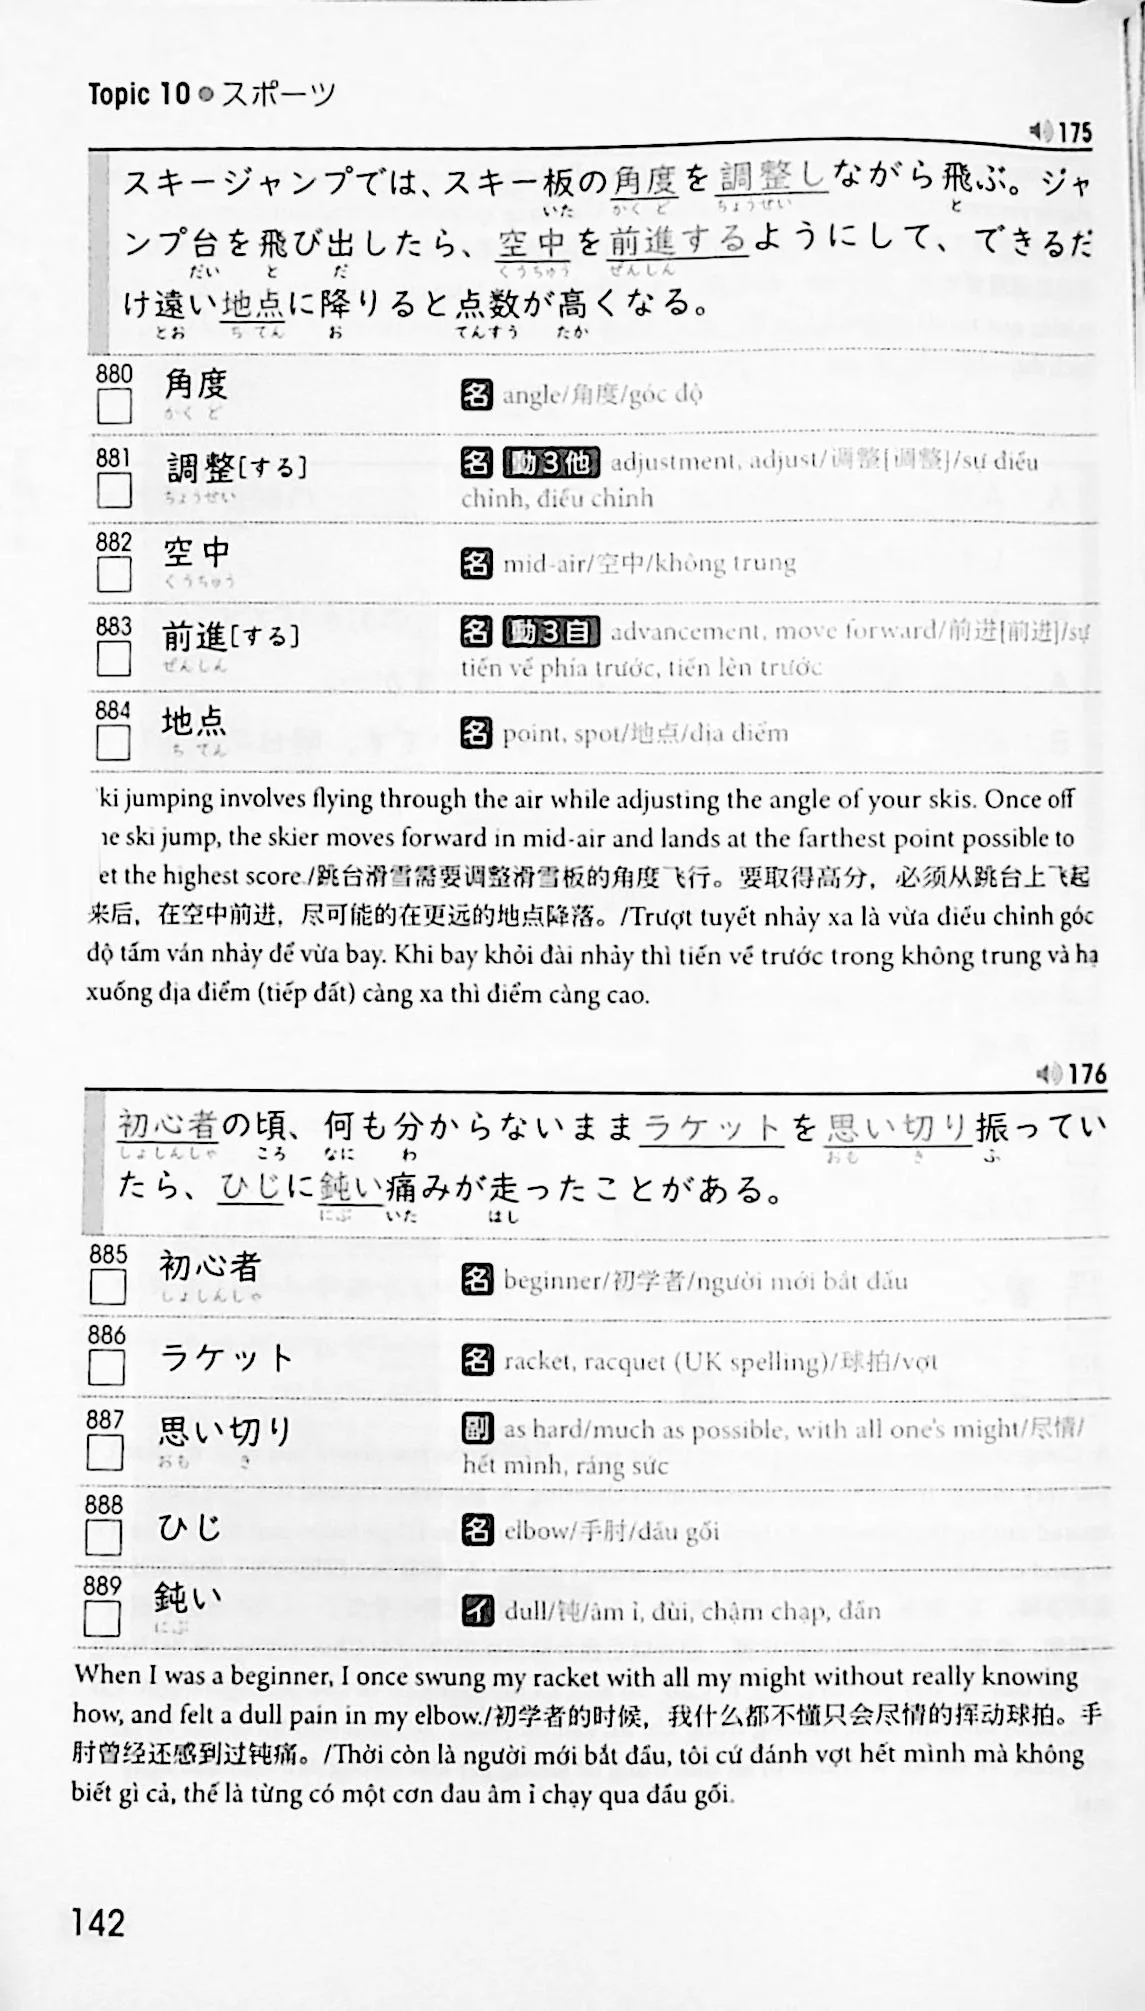 Topic 10 ● スポーツ
175
スキージャンプでは、スキー板の角度を調整しながら飛ぶ。ジャ
いた かくど ちょうせい と
ンプ台を飛び出したら、空中を前進するようにして、できるだ
だい と だ くうちゅう ぜんしん
け遠い地点に降りると点数が高くなる。
とお ちてん お てんすう たか
880 角度 名 angle/角度/góc độ
かくど
881 調整[する] 名 動3他 adjustment, adjust/调整[调整]/sự điều
ちょうせい chỉnh, điều chỉnh
882 空中 名 mid-air/空中/không trung
くうちゅう
883 前進[する] 名 動3自 advancement, move forward/前进[前进]/sự
ぜんしん tiến về phía trước, tiến lên trước
884 地点 名 point, spot/地点/địa điểm
ちてん
ki jumping involves flying through the air while adjusting the angle of your skis. Once off
ne ski jump, the skier moves forward in mid-air and lands at the farthest point possible to
et the highest score./跳台滑雪需要调整滑雪板的角度飞行。要取得高分，必须从跳台上飞起
来后，在空中前进，尽可能的在更远的地点降落。/Trượt tuyết nhảy xa là vừa điều chỉnh góc
độ tấm ván nhảy để vừa bay. Khi bay khỏi đài nhảy thì tiến về trước trong không trung và hạ
xuống địa điểm (tiếp đất) càng xa thì điểm càng cao.
176
初心者の頃、何も分からないままラケットを思い切り振ってい
しょしんしゃ ころ なに わ おも き ふ
たら、ひじに鈍い痛みが走ったことがある。
にぶ いた はし
885 初心者 名 beginner/初学者/người mới bắt đầu
しょしんしゃ
886 ラケット 名 racket, racquet (UK spelling)/球拍/vợt
887 思い切り 副 as hard/much as possible, with all one's might/尽情/
おも き hết mình, ráng sức
888 ひじ 名 elbow/手肘/đầu gối
889 鈍い イ dull/钝/âm ỉ, đùi, chậm chạp, đần
にぶ
When I was a beginner, I once swung my racket with all my might without really knowing
how, and felt a dull pain in my elbow./初学者的时候，我什么都不懂只会尽情的挥动球拍。手
肘曾经还感到过钝痛。/Thời còn là người mới bắt đầu, tôi cứ đánh vợt hết mình mà không
biết gì cả, thế là từng có một cơn đau âm ỉ chạy qua đầu gối.
142